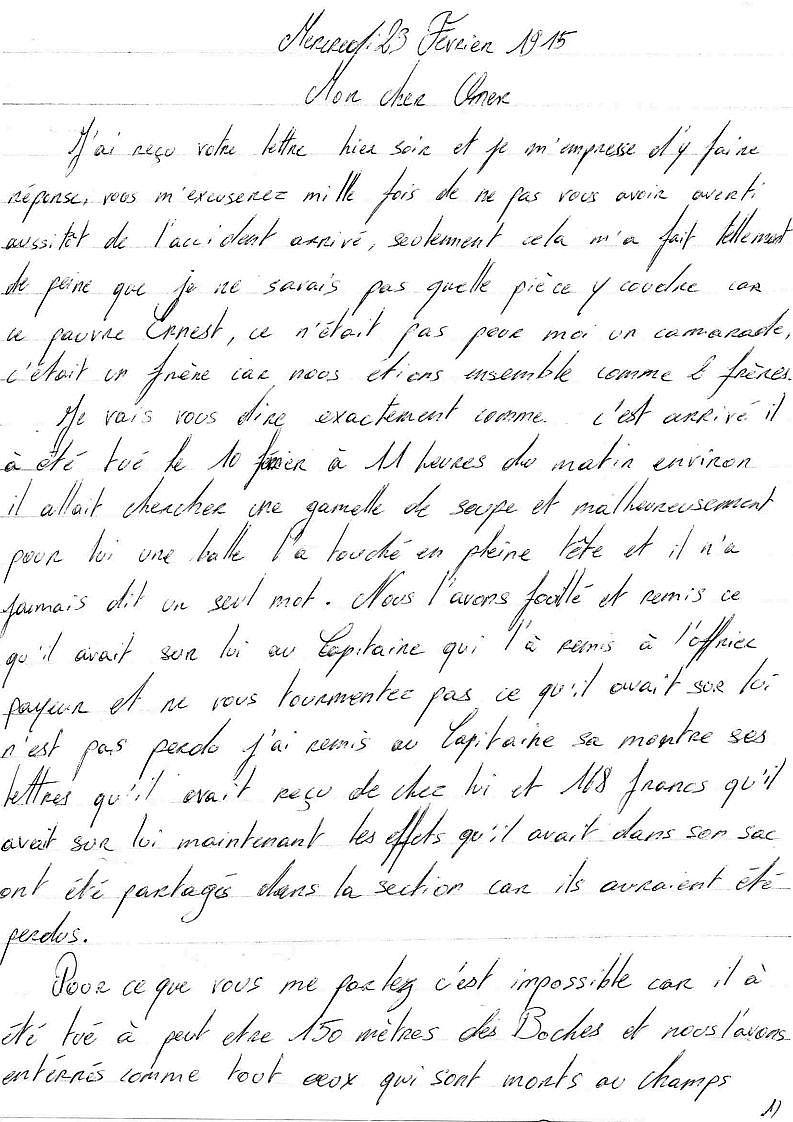 Mercredi 23 Février 1915
Mon cher Omer
J'ai reçu votre lettre hier soir et je m'empresse d'y faire
réponse, vous m'excuserez mille fois de ne pas vous avoir averti
aussitôt de l'accident arrivé, seulement cela m'a fait tellement
de peine que je ne savais pas quelle pièce y coudre car
ce pauvre Ernest, ce n'était pas pour moi un camarade,
c'était un frère car nous etions ensemble comme 2 frères.
Je vais vous dire exactement comme c'est arrivé il
à été tué le 10 février à 11 heures du matin environ
il allait chercher une gamelle de soupe et malheureusement
pour lui une balle l'a touché en pleine tête et il n'a
jamais dit un seul mot. Nous l'avons fouillé et remis ce
qu'il avait sur lui au Capitaine qui l'à remis à l'officier
payeur et ne vous tourmentez pas ce qu'il avait sur lui
n'est pas perdu j'ai remis au Capitaine sa montre ses
lettres qu'il avait reçu de chez lui et 168 francs qu'il
avait sur lui maintenant les effets qu'il avait dans son sac
ont été partagés dans la section car ils auraient été
perdus.
Pour ce que vous me parlez c'est impossible car il à
été tué à peut etre 150 mètres des Boches et nous l'avons
entérrés comme tout ceux qui sont morts au champs
1)